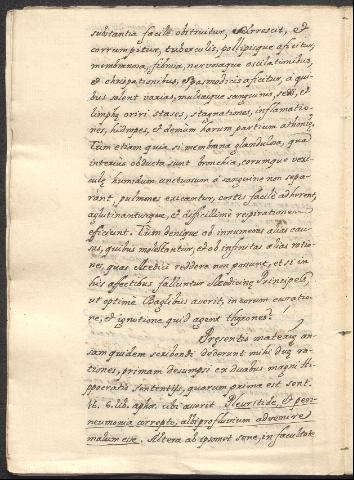 substantia facilè obstruitur, obrrescit, et
corrumpitur, tuberculis, pollypisque aficitur,
membranosa, fibrisa, nervosaque oscilationibus,
et chrispationibus, spasmodicis aficitur, a qui-
bus solent varias, multasque sanguinis, seri, et
limphę oriri stases, stagnationes, inflamatio-
nes, hidropes, et demum harum partium athonię.
Tum etiam quia si membrana glandulosa, qua
interius obducta sunt bronchia, eorumque vesi-
culę humidum unctuosum a sanguine non sepa-
rant, pulmones exsicantur, costis facilè adherent,
aglutinanturque, et difficillimè respirationem
eficiunt. Tum denique ob innumeras alias cau-
sas, quibus molestantur, et ob infinitas alias ratio-
nes, quas Medici reddere non possunt, et si in
his affectibus falluntur Medicinę Principes,
ut optimè Baglibus aserit, in eorum curatio-
ne, et ignotione quid agent thyrones?
Pręsentis materię an-
sam quidem scribenti dederunt mihi duę ra-
tiones, primam desumpsi ex duabus magni Hip-
pocratis sententijs, quarum prima est sent.
16. 6. lib. aphor. ubi aserit Pleuritide, et peri-
neumonia correpto, albi profluvium advenire
malum esse. Altera ab ipsomet sene, in facultat-